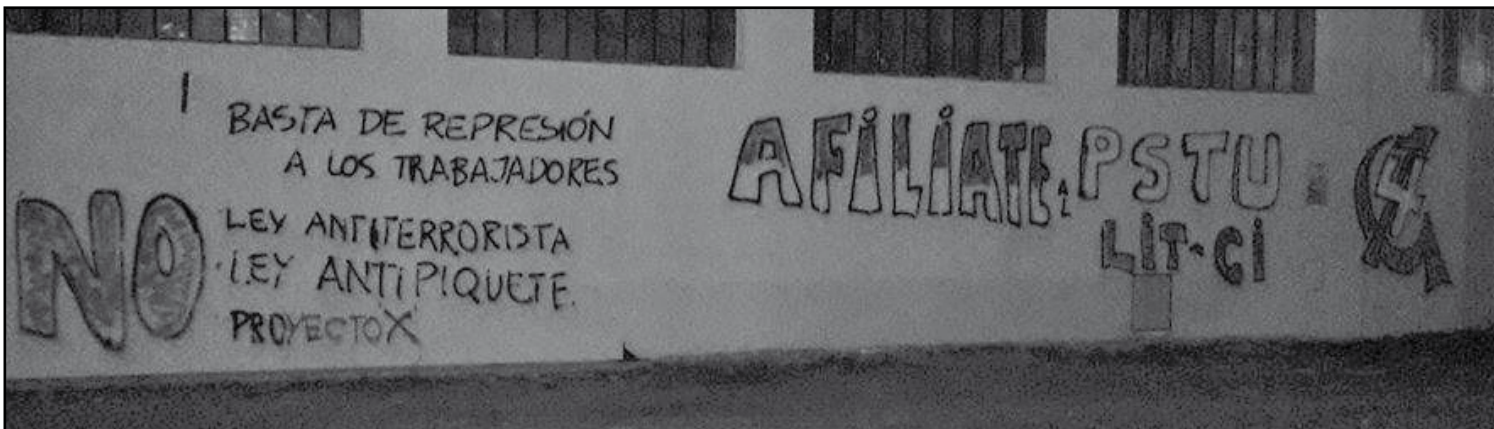 BASTA DE REPRESIÓN
A LOS TRABAJADORES
NO
LEY ANTITERRORISTA
LEY ANTIPIQUETE
PROYECTO X
AFÍLIATE AL PSTU
LIT-CI
4